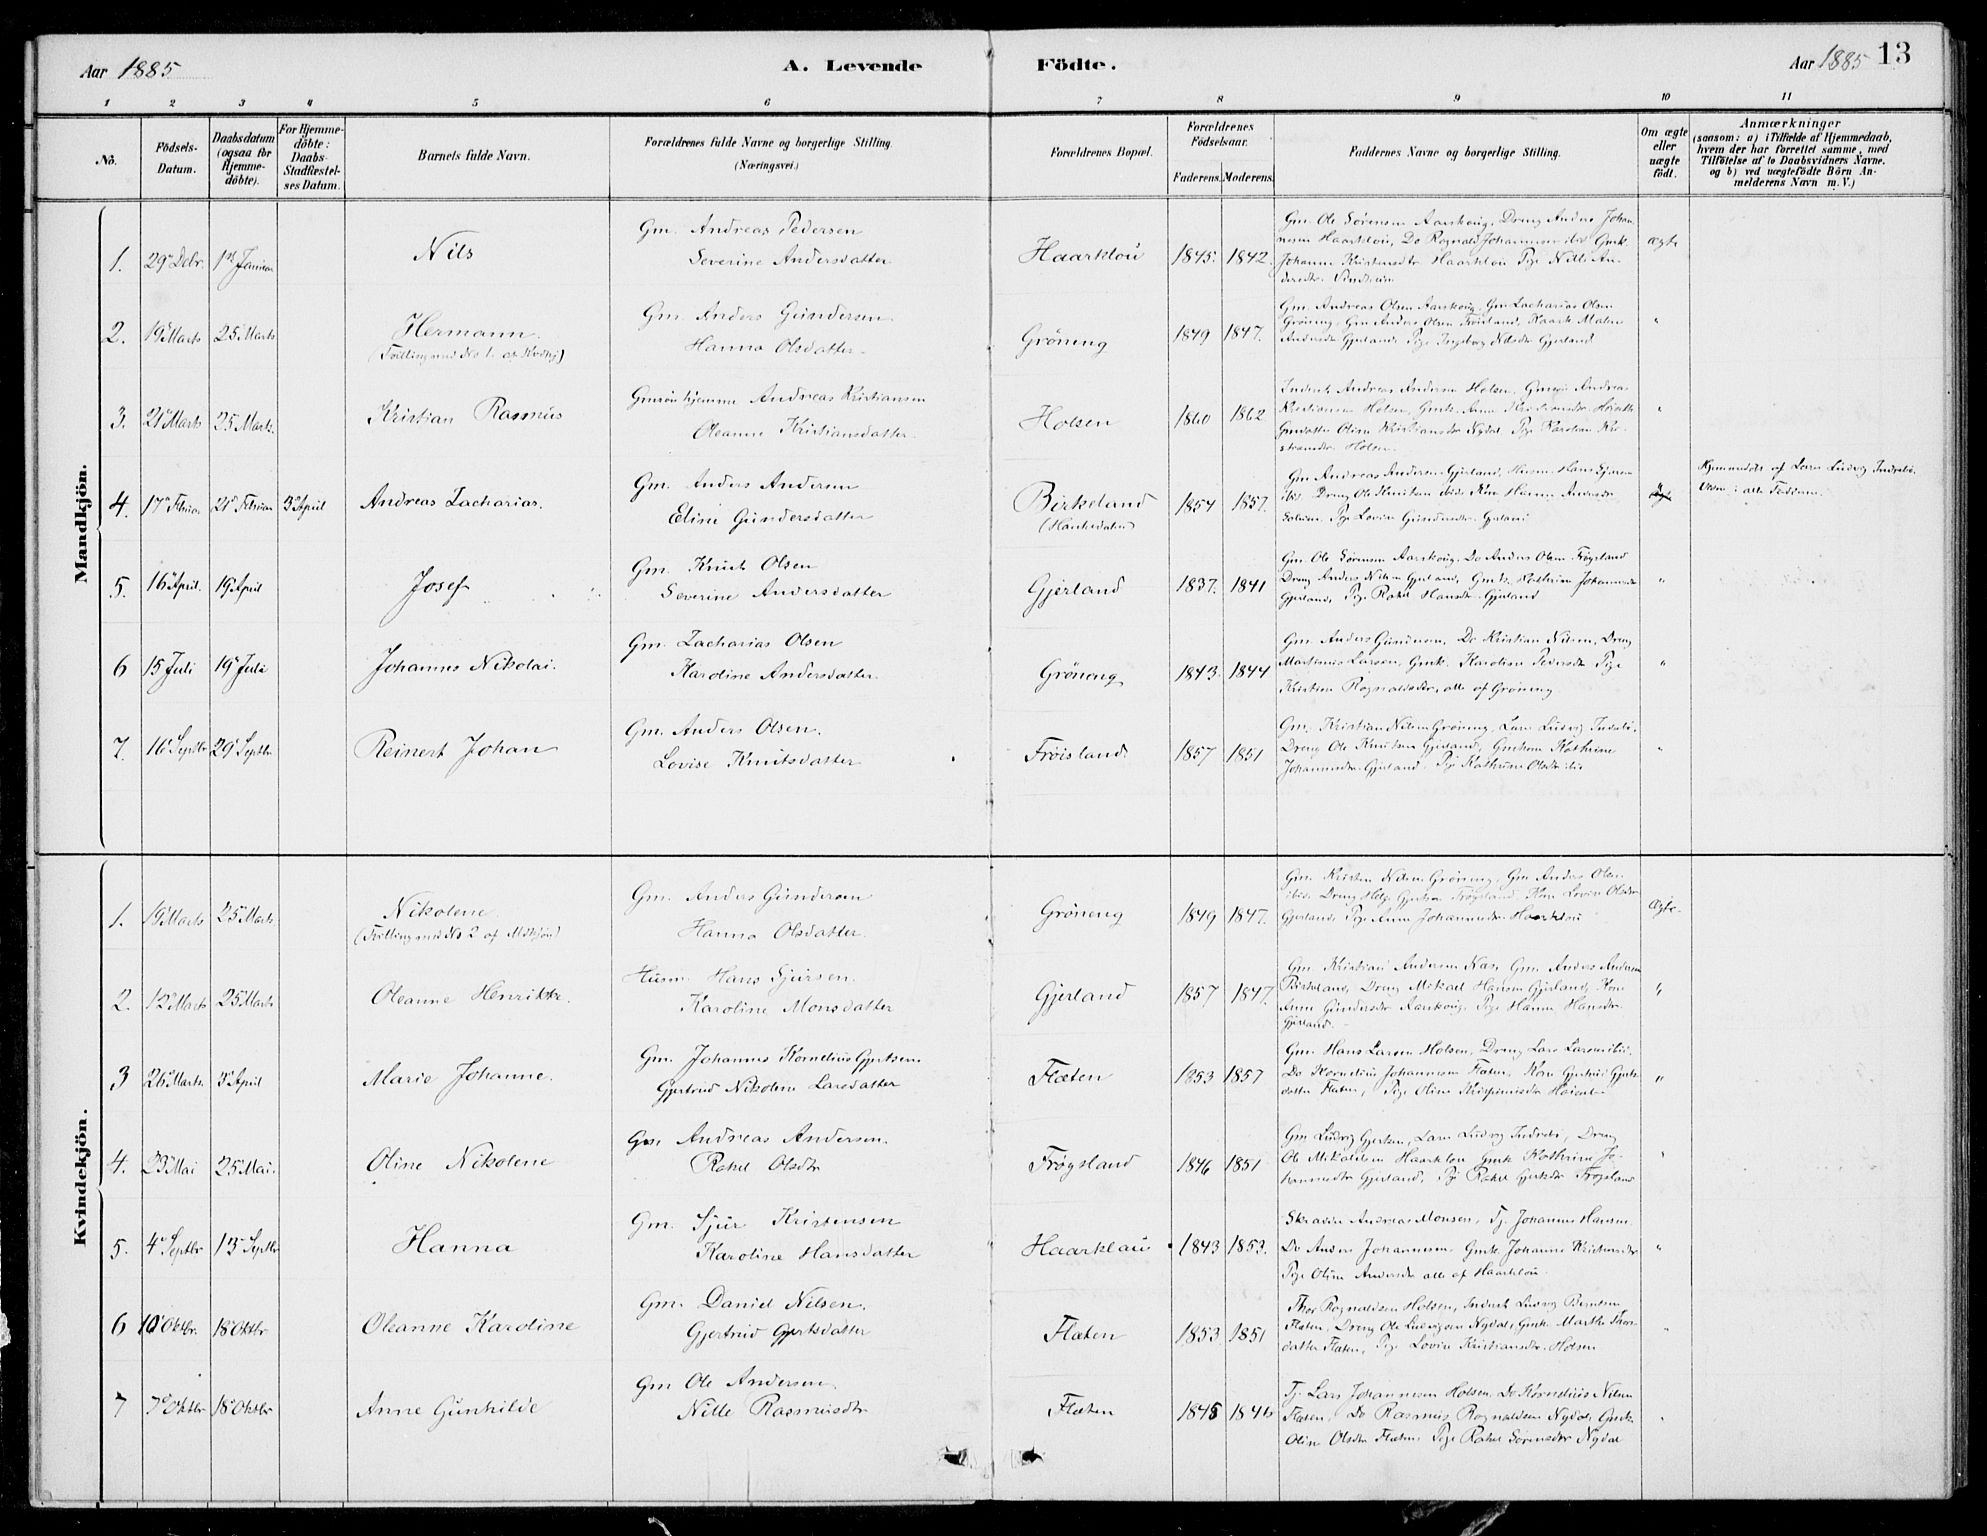 Aar 1885
A. Levende Födte.
Aar 1885 13
1 2 3 4 5 6 7 8 9 10 11
No.
Födsels-Datum.
Daabsdatum (ogsaa for Hjemmedöbte).
For Hjemmedöbte: Daabs-Stadfæstelses Datum.
Barnets fulde Navn.
Forældrenes fulde Navne og borgerlige Stilling (Næringsvei.)
Forældrenes Bopæl.
Forældrenes Födselsaar.
Faderens. Moderens.
Faddernes Navne og borgerlige Stilling.
Om ægte eller uægte födt.
Anmærkninger
(saasom: a) i Tilfælde af Hjemmedaab,
hvem der har forrettet samme, med
Tilföielse af to Daabsvidners Navne.
og b) ved uægtefödte Börn An-
melderens Navn m. V.)
Mandkjön.
1. 29 Dcbr. 1 Januar Nils Gm. Andreas Pedersen
Severine Andersdatter Haarklou 1845. 1842. ægte
Gm. Ole Sörensen Aarskoug, Dreng Anders Johan-
nesen Haarklou, Do Rognald Johannesen ibid Gmk.
Johanne Kristensdtr Haarklou Pige Nille An-
dersdtr
2. 19 Marts 25 Marts Hermann.
(Tvilling med No 1. af Kvdkj) Gm. Anders Gundersen
Hanna Olsdatter Gröneng 1849 1847. "
Gm. Andreas Olsen Aarskoug, Gm Zacharias Olsen
Gröneng, Gm Anders Olsen Fröisland,
Andersdtr Gjerland Pige Ingeborg Nilsdtr Gjerland
3. 21 Marts 25 Marts. Kristian Rasmus hjemme Andreas Kristiansen
Oleanne Kristiansdatter Holsen 1860 1862 "
Inderst Andreas Andersen Holsen, Andreas
Kristiansen Holsen, Gmk. Anne
Olina Kristiansdtr Nydal Pige Karoline Kri-
stiansdtr Holsen
4. 17 Februar 21 Februar 3 April Andreas Zacharias. Gm. Anders Andersen
Eline Gundersdatter Birkeland
1854 1857. ægte
Gm Andreas Andersen Gjerland, Husm. Hans Sjursen
ibid. Dreng Ole Knutsen ibid. Kone Hanna Andersdtr
Pige Lovise Gundersdtr Gjerland
Hjemmedöbt af Lars Ludvig Indrebö.
5. 16 April. 19 April Josef Gm. Knut Olsen
Severine Andersdatter Gjerland 1837. 1841 "
Gm Ole Sörensen Aarskoug, Do Anders Olsen Frögsland
Dreng Anders Nilsen Gjerland, Gmk. Kathrine Johannesdtr
Gjerland, Pige Rakel Hansdtr Gjerland
6 15 Juli 19 Juli Johannes Nikolai. Gm. Zacharias Olsen
Karoline Andersdatter. Gröneng 1843. 1844 "
Gm. Anders Gundersen, Do Kristian Nilsen, Dreng
Martinus Larsen, Gmk. Karoline Pedersdtr Pige
Kristine Rognaldsdtr, alle af Gröneng
7. 16 Septbr 29 Septbr Reinert Johan Gm. Anders Olsen.
Lovise Knutsdatter Fröisland. 1857 1851 "
Gm. Kristian Nilsen Gröneng, Lars Ludvig Indrebö,
Dreng Ole Knutsen Gjerland, Gmkone Kathrine
Johannesdtr Gjerland. Pige Kathrine Olsdtr ibid
Kvindekjön.
1. 19 Marts 25 Marts Nikolene
(Tvilling med No 2 af Mdkjön) Gm. Anders Gundersen
Hanna Olsdatter. Gröneng 1849 1847. Ægte.
Gm. Kristen Nilsen Gröneng, Gm Anders Olsen
ibid. Dreng Helge Gjertsen Frögsland, Kone Lovise Olsdtr
Gjerland, Pige Anne Johannesdtr Haarklou
2. 12 Marts 25 Marts Oleanne Henrikke. Husm. Hans Sjursen.
Karoline Monsdatter Gjerland 1857 1847. "
Gm. Kristian Andersen Nas, Gm. Anders Andersen
Birkeland, Dreng Mikael Hansen Gjerland, Kone
Anne Gundersdtr Aarskoug, Pige Hanna Hansdtr
Gjerland.
3 26 Marts. 3 April Marie Johanne. Gm. Johannes Kornelius Gjertsen
Gjertrud Nikolina Larsdatter Flæten 1853 1857 "
Gm. Hans Larsen Holsen, Dreng Lars Larsen ibid.
Do Kornelius Johannesen Flæten, Kone Gjertrud Gjerts-
datter Flæten, Pige Oline
4. 23 Mai 25 Mai. Oline Nikolene Gm Andreas Andersen.
Rakel Olsdtr Frögsland 1846 1851 "
Gm Ludvig Gjertsen, Lars Ludvig Indrebö, Dreng
Ole Mikaelsen Haarklou Gmk Kathrine Jo-
hannesdtr Gjerland, Pige Rakel Gjertsdtr Frögsland
5. 4 Septbr 13 Septbr Hanna Gm. Sjur Kristensen
Karoline Hansdatter Haarklau 1843 1853. "
Andreas Monsen, Tj. Johannes Hansen
Do Anders Johannesen. Gmk. Johanne Kristensdtr
Pige Oline Andersdtr alle af Haarklou
6 10 Oktbr. 18 Oktbr Oleanne Karoline Gm. Daniel Nilsen.
Gjertrud Gjertsdatter Flæten 1853 1851 "
Thor Rognaldsen Holsen, Inderst Ludvig Berntsen
Flæten, Dreng Ole Ludvigsen Nydal, Gmk Marthe Thors-
datter Flæten, Pige Lovise Kristiansdtr Holsen
7 7 Oktbr 18 Oktbr Anne Gunhilde Gm Ole Andersen.
Nille Rasmusdtr Flæten 1845 1846 "
Tj. Lars Johannesen Holsen. Do Kornelius Nilsen
Flæten, Do Rasmus Rognaldsen Nydal, Gmk.
Oline Olsdtr Flæten Pige Rakel Sörensdtr Nydal